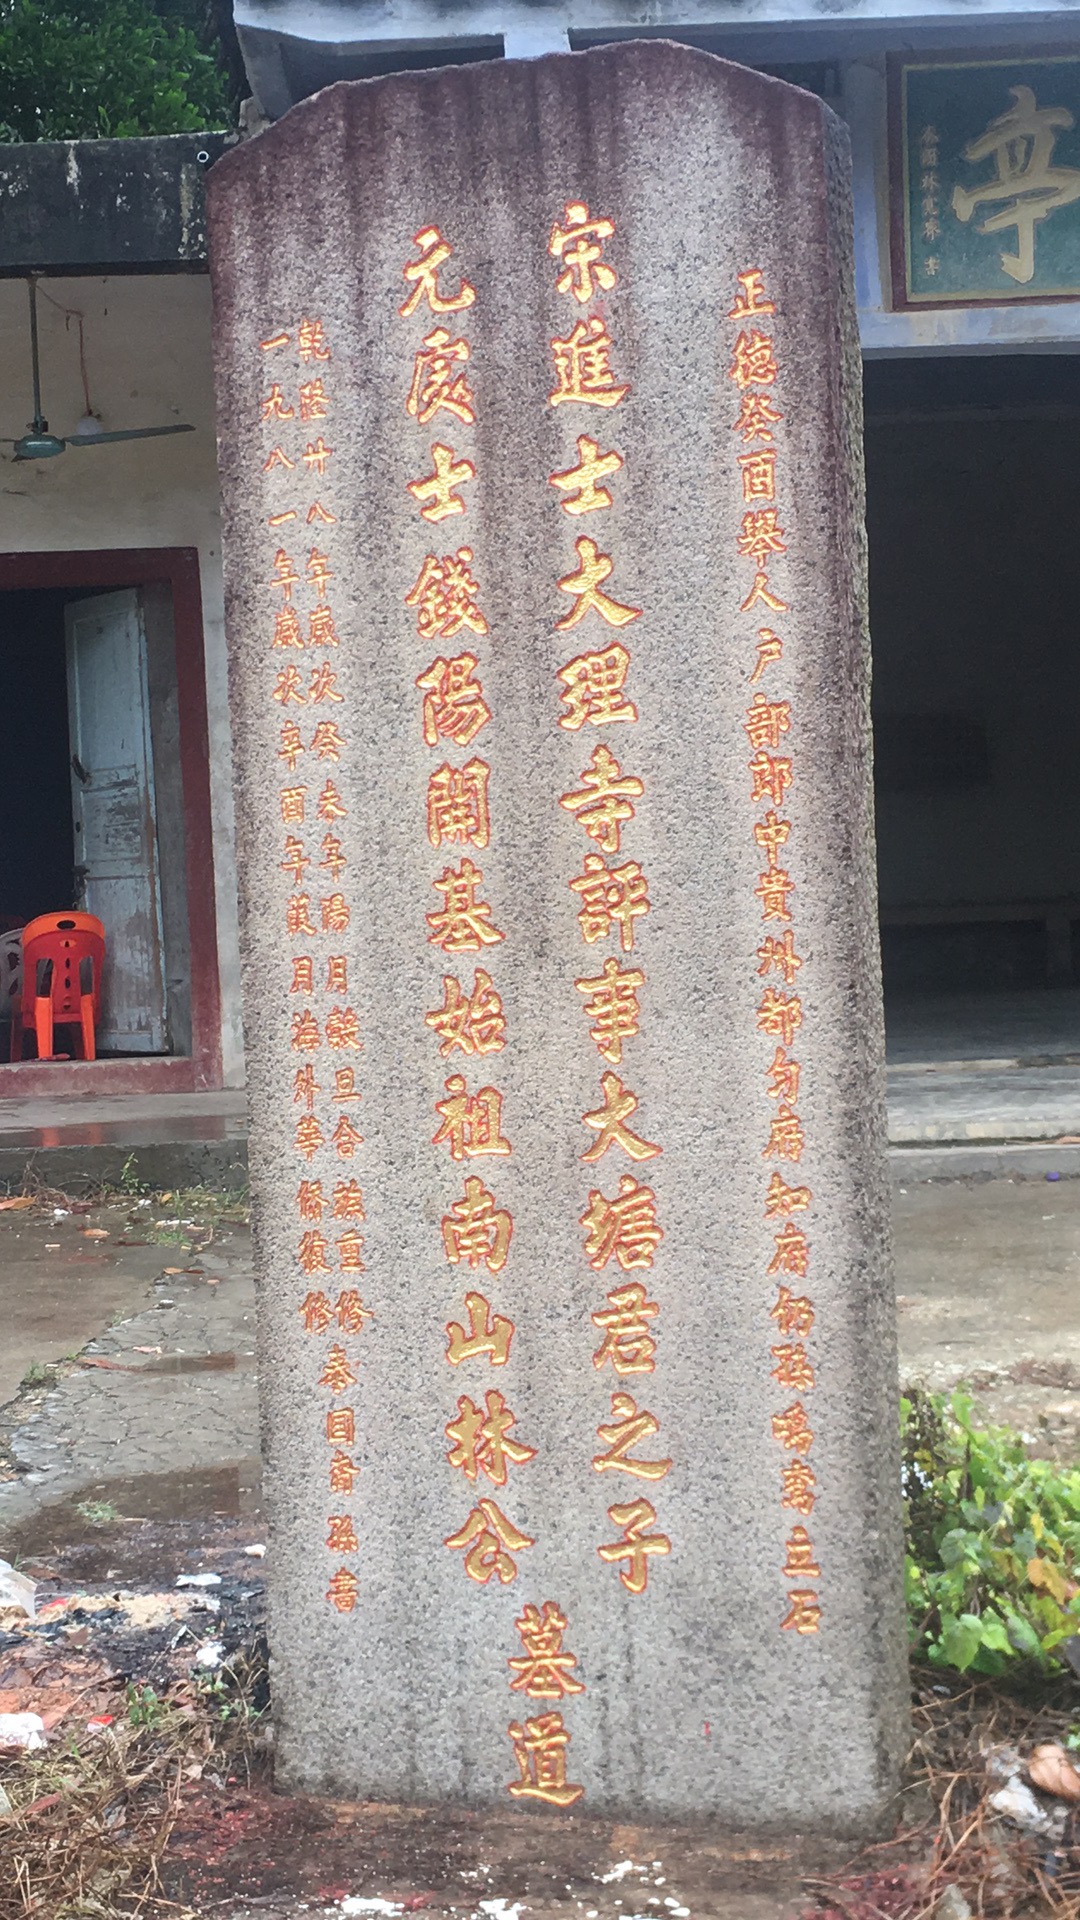 亭
正德癸酉舉人户部郎中貴州都勻府知府仍孫鳴鸞立石
宋進士大理寺評事大塘君之子
元處士錢陽開基始祖南山林公
墓道
乾隆廿八年歲次癸未年陽月穀旦合族重修泰国裔孫書
一九八一年歲次辛酉年葭月海外華僑復修